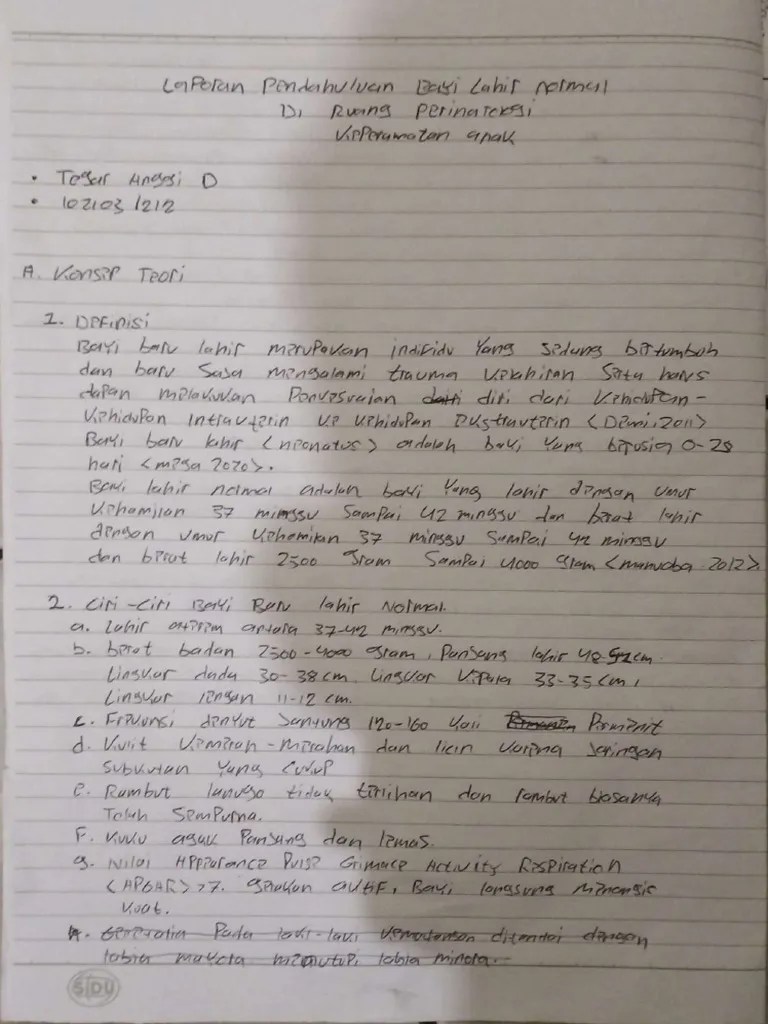 Laporan Pendahuluan Bayi Lahir Normal
Di Ruang Perinatologi
Keperawatan anak
• Tegar Anggi D
• 102103 1212
A. Konsep Teori
1. Definisi
Bayi baru lahir merupakan individu yang sedang bertumbuh
dan baru saja mengalami trauma kelahiran serta harus
dapat melakukan Penyesuaian dari diri dari kehidupan-
kehidupan intrauterin ke kehidupan ekstrauterin <Dewi, 2011>
Bayi baru lahir <neonatus> adalah bayi yang berusia 0-28
hari <mega 2020>.
Bayi lahir normal adalah bayi yang lahir dengan umur
kehamilan 37 minggu sampai 42 minggu dan berat lahir
dengan umur kehamilan 37 minggu sampai 42 minggu
dan berat lahir 2500 gram sampai 4000 gram <manuaba 2012>.
2. Ciri-Ciri Bayi Baru lahir Normal.
a. Lahir aterem antara 37-42 minggu.
b. berat badan 2500-4000 gram, Panjang lahir 48-52 cm.
lingkar dada 30-38 cm. lingkar kepala 33-35 cm,
lingkar lengan 11-12 cm.
c. Frekunsi denyut Jantung 120-160 kali Permenit
d. Kulit kemerah-merahan dan licin karena jaringan
subkutan yang cukup
e. Rambut lanugo tidak terlihat dan rambut biasanya
Telah sempurna.
F. Kuku agak Panjang dan lemas.
g. Nilai Appearance Pulse Grimace Activity Respiration
<APGAR> >7. gerakan aktif, Bayi langsung menangis
kuat.
h. Genetalia Pada laki-laki kematangan ditandai dengan
labia mayora menutupi labia minora.
SIDU